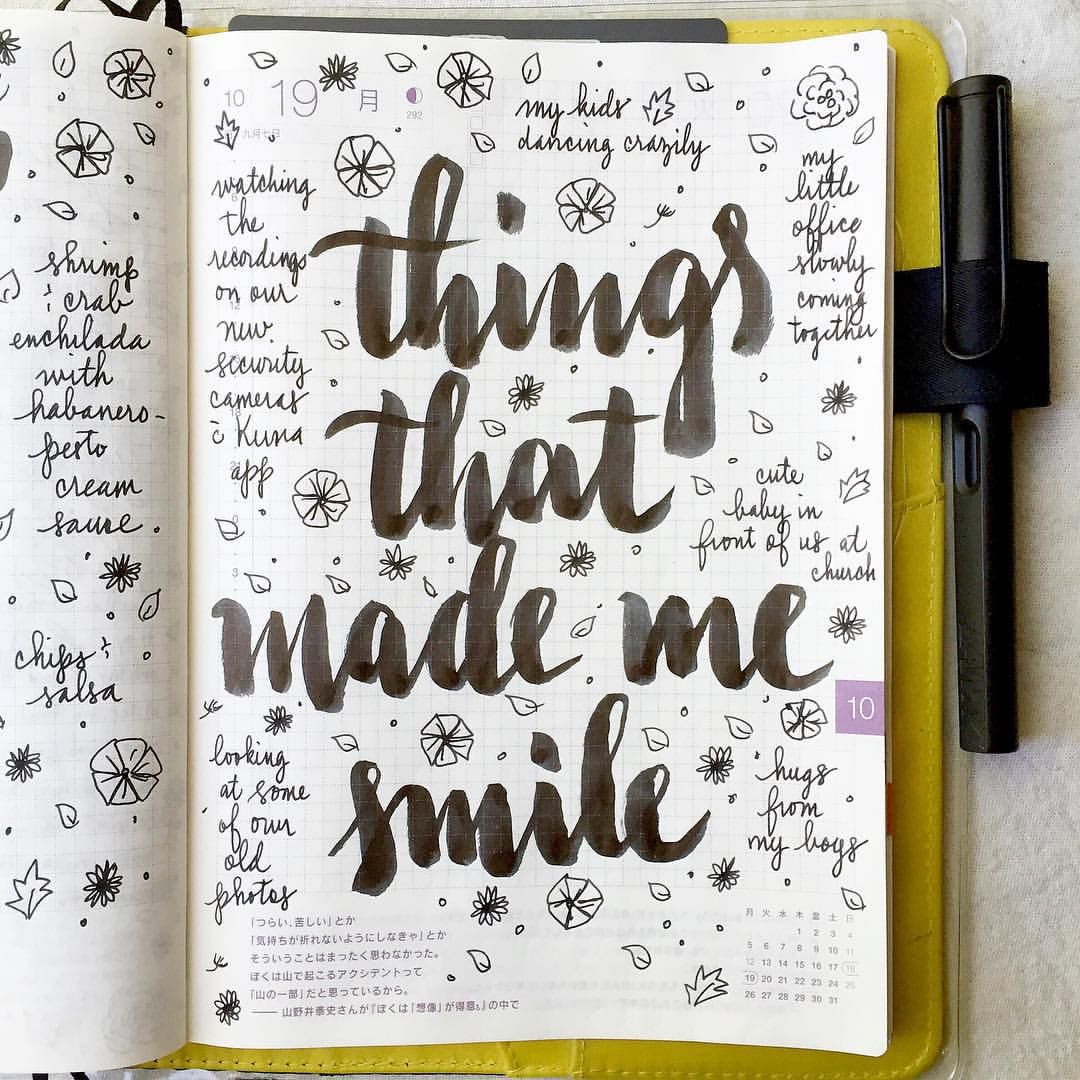 shrimp
& crab
enchilada
with
habanero-
pesto
cream
sauce.
chips &
salsa
10 19 月
292
九月七日
my kids
dancing crazily
my
little
office
slowly
coming
together
watching
the
recordings
on our
new
security
cameras
c̄ Kuna
app
things
that
made me
smile
cute
baby in
front of us at
church
10
looking
at some
of our
old
photos
hugs
from
my boys
「つらい、苦しい」とか
「気持ちが折れないようにしなきゃ」とか
そういうことはまったく思わなかった。
ぼくは山で起こるアクシデントって
「山の一部」だと思っているから。
―― 山野井泰史さんが『ぼくは「想像」が得意。』の中で
月 火 水 木 金 土 日
1 2 3 4
5 6 7 8 9 10 11
12 13 14 15 16 17 18
19 20 21 22 23 24 25
26 27 28 29 30 31